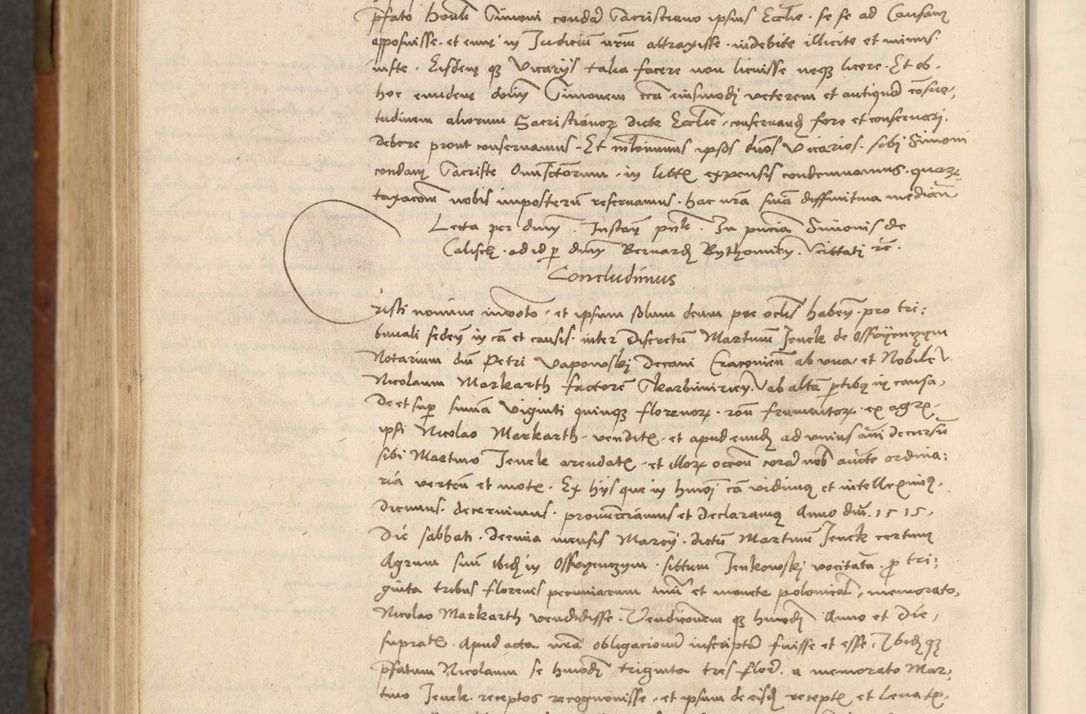 pńfato Honli Simoni condam Sacristiano ipsius Ecclie. se se ad Causam
opposuisse. et eum in Judiciu nrm altraxisse. indebite illicite et minus.
iuste. Eisdem q3 Vicarijs talia facere non licuisse neq3 licere. Et ob
hoc eundem dnum Simonem eiusmodi veterem et antiqua consue,
tudinem aliorum Sacristianor dicte Ecclie. conservand fore et conservari.
Debere prout conservamus. Et ipsos duos Vicarios. sibi Simoni
condam Sacriste in expensis condemnamus. quar
taxacom nobis imposteru reservamus. hac nra snia diffinitiva median
Lecta per dnum. Instan pnte. In pncia Simonis de
Calisch. ad id p dnum Bernard Bythomien. Cittati rc.
Concludimus
risti nomine invocato. et ipsum solum deum pre oclis haben. pro tri:
bunali seden in ca et causis. inter Discretum Martinum Jenek de Osswyenczym
Notarium dni Petri Vapowski Decani Cracovien ab una. et Nobile
Nicolaum Markarth factore Skarbimirien. ab alta ptibq in causa,
De et sup summa Viginti quinq3 florenor. ron frumentor. ex agr.
ipsi Nicolao Markarth. vendit. et apud eund ad unius anni decursu
sibi Martino Jenek arendat. et illor occon cora nob aucte ordina:
ria verten et mote. Ex hijs que in hmoi ca vidimq et intelleximq.
Dicimus. decernimus. pronunciamus et Declaramq Anno dni. 1515.
Die sabbati. Decima mensis Marcij. dictu Martinum Jenek certum
Agrum suu ibid in Osswyenczym. situm Jenkowski vocitatu. p tri:
ginta tribus florenis pecuniarum nui et monete polonical, memorato,
Nicolao Markarth vendidisse. Vendiconem q3 hmodi Anno et Die,
suprat. Apud acta nra obligacionu inscripta fuisse et esse. Ibid q3
pfatum Nicolaum se hmodi triginta tres flor. a memorato Mar,
tino Jenek. receptos recognovisse. et ipsum de eisd recept et levat.